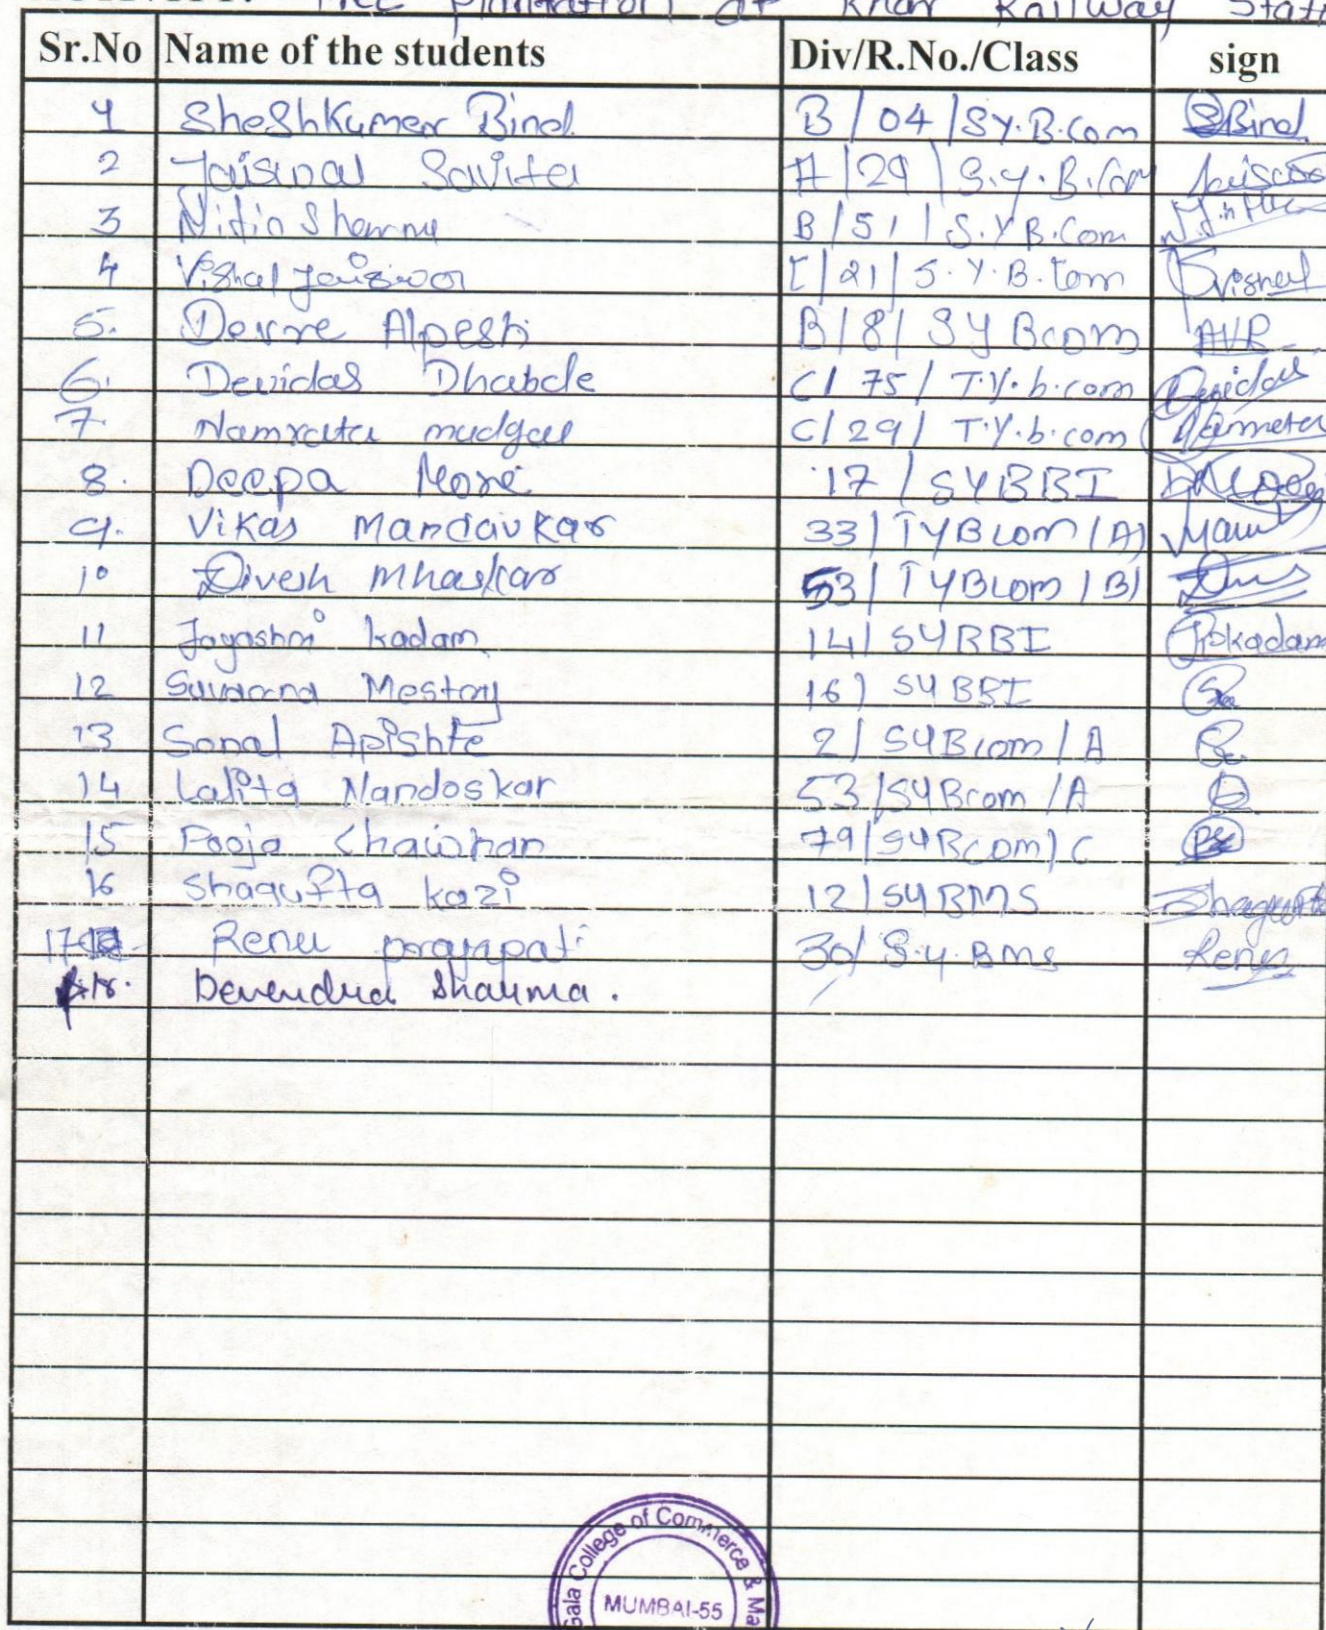 Tree plantation at Khar Railway Stati
Sr.No Name of the students Div/R.No./Class sign
1 Sheshkumar Bind B / 04 / SY.B.Com SBind
2 Jaiswal Savita A / 29 / S.y.B.Com
3 Nitin Sharma B / 51 / S.Y B.Com
4 Vishal Jaiswar C / 21 / S.Y.B.Com Vishal
5. Devre Alpesh B / 8 / SY Bcom AVR
6. Devidas Dhabale C / 75 / T.Y.b.com Devidas
7. Namrata mudgal C / 29 / T.Y.b.com Namrata
8. Deepa More 17 / SYBBI
9. Vikas Mandavkar 33 / TYBcom / A)
10 Divesh Mhaskar 53 / TYBcom / B)
11 Jayashri kadam 14 / SYBBI kadam
12 Suvarna Mestry 16) SYBBI
13 Sonal Apishte 2 / SYBcom / A
14 Lalita Nandoskar 53 / SYBcom / A
15 Pooja Chauhan 79 / SYBcom / C
16 Shagufta kazi 12 / SYBMS Shagufta
17 Renu prajapati 30 / S.y.Bms Renu
18. Devendra Sharma.
Gala College of Commerce & Ma
MUMBAI-55